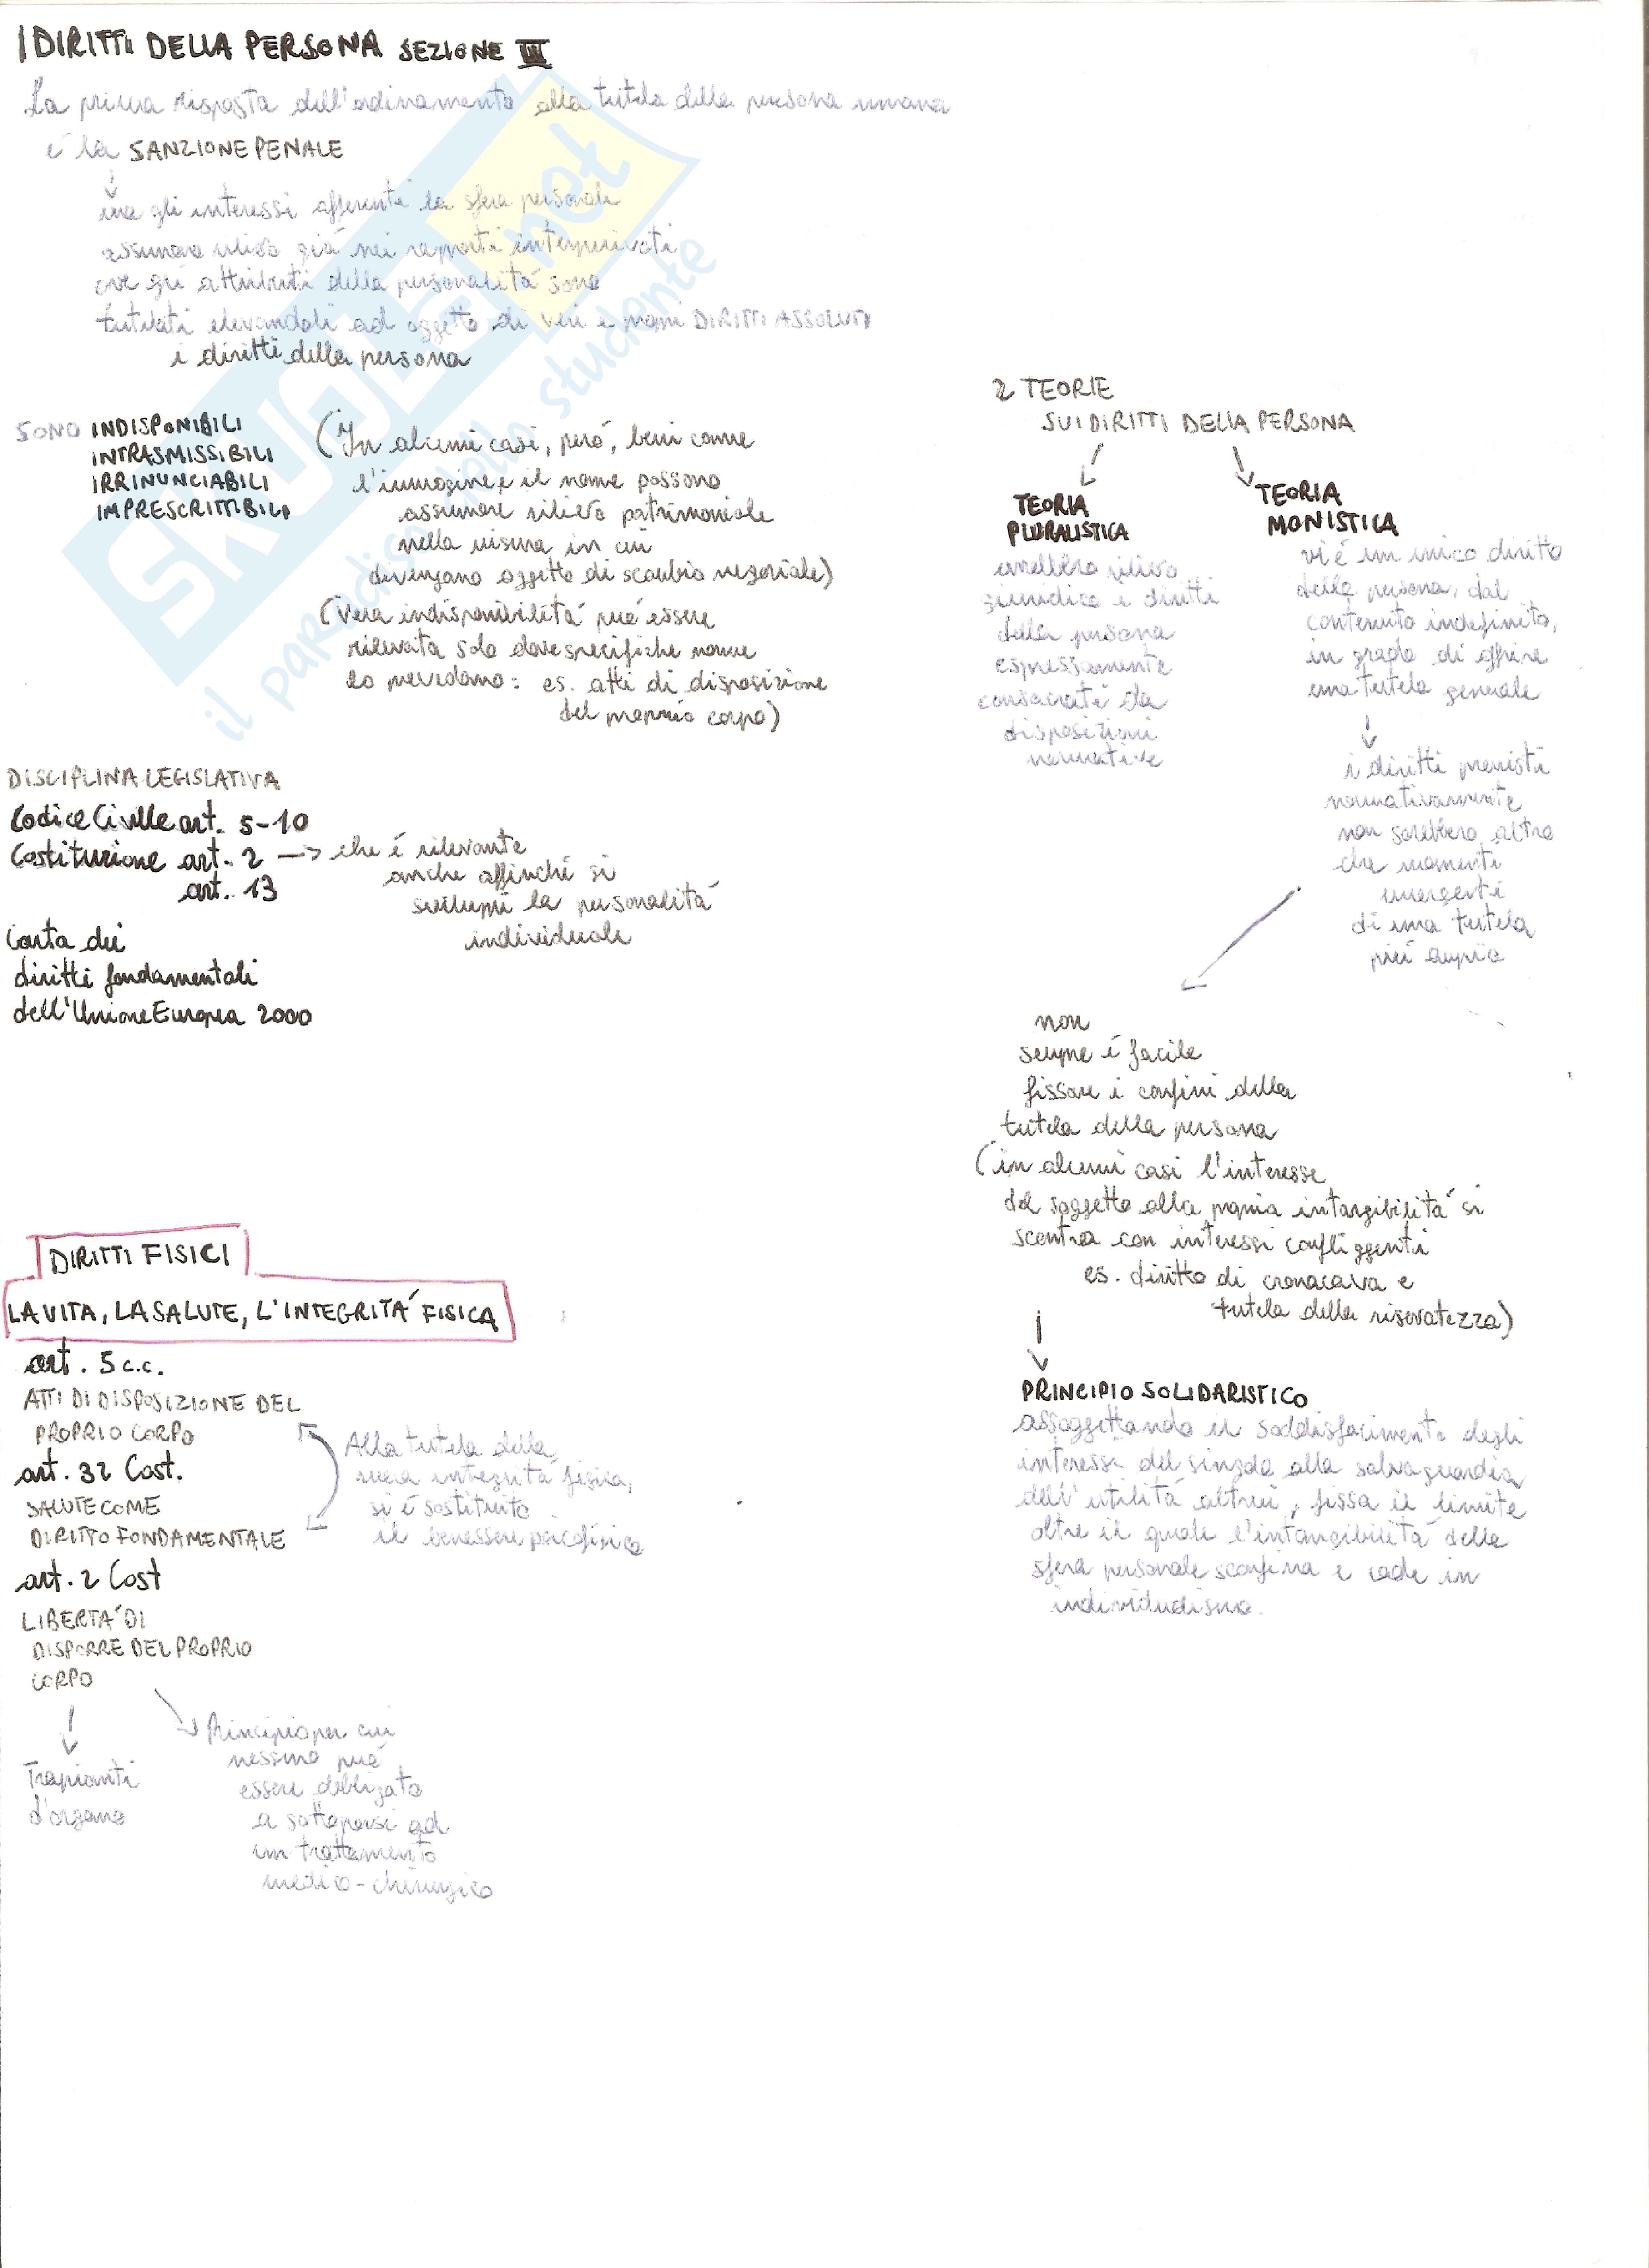 I DIRITTI DELLA PERSONA SEZIONE III
La prima risposta dell'ordinamento alla tutela della persona umana
é la SANZIONE PENALE
ma gli interessi afferenti la sfera personale
assumono rilievo giá nei rapporti interprivati
ove gli attributi della personalitá sono
tutelati elevandoli ad oggetto di veri e propri DIRITTI ASSOLUTI
i diritti della persona
SONO INDISPONIBILI
INTRASMISSIBILI
IRRINUNCIABILI
IMPRESCRITTIBILI
(In alcuni casi, peró, beni come
l'immagine e il nome possono
assumere rilievo patrimoniale
nella misura in cui
divengano oggetto di scambio negoziale)
(Vera indisponibilitá puó essere
rilevata solo dove specifiche norme
lo prevedono: es. atti di disposizione
del proprio corpo)
DISCIPLINA LEGISLATIVA
Codice Civile art. 5-10
Costituzione art. 2 -> che é rilevante
anche affinché si
sviluppi la personalitá
individuale
art. 13
Carta dei
diritti fondamentali
dell'Unione Europea 2000
DIRITTI FISICI
LA VITA, LA SALUTE, L'INTEGRITÁ FISICA
art. 5 c.c.
ATTI DI DISPOSIZIONE DEL
PROPRIO CORPO
art. 32 Cost.
SALUTE COME
DIRITTO FONDAMENTALE
Alla tutela della
mera integritá fisica,
si é sostituito
il benessere psicofisico
art. 2 Cost
LIBERTÁ DI
DISPORRE DEL PROPRIO
CORPO
Trapianti
d'organo
Principio per cui
nessuno puó
essere obbligato
a sottoporsi ad
un trattamento
medico-chirurgico
2 TEORIE
SUI DIRITTI DELLA PERSONA
TEORIA
PLURALISTICA
avrebbero rilievo
giuridico i diritti
della persona
espressamente
consacrati da
disposizioni
normative
TEORIA
MONISTICA
vi é un unico diritto
della persona, dal
contenuto indefinito,
in grado di offrire
una tutela generale
i diritti previsti
normativamente
non sarebbero altro
che momenti
emergenti
di una tutela
piú ampia
non
sempre é facile
fissare i confini della
tutela della persona
(in alcuni casi l'interesse
del soggetto alla propria intangibilitá si
scontra con interessi confliggenti
es. diritto di cronaca e
tutela della riservatezza)
PRINCIPIO SOLIDARISTICO
assoggettando il soddisfacimento degli
interessi del singolo alla salvaguardia
dell'utilitá altrui, fissa il limite
oltre il quale l'intangibilitá della
sfera personale sconfina e cade in
individualismo.
SKUOLA.net
il paradiso dello studente